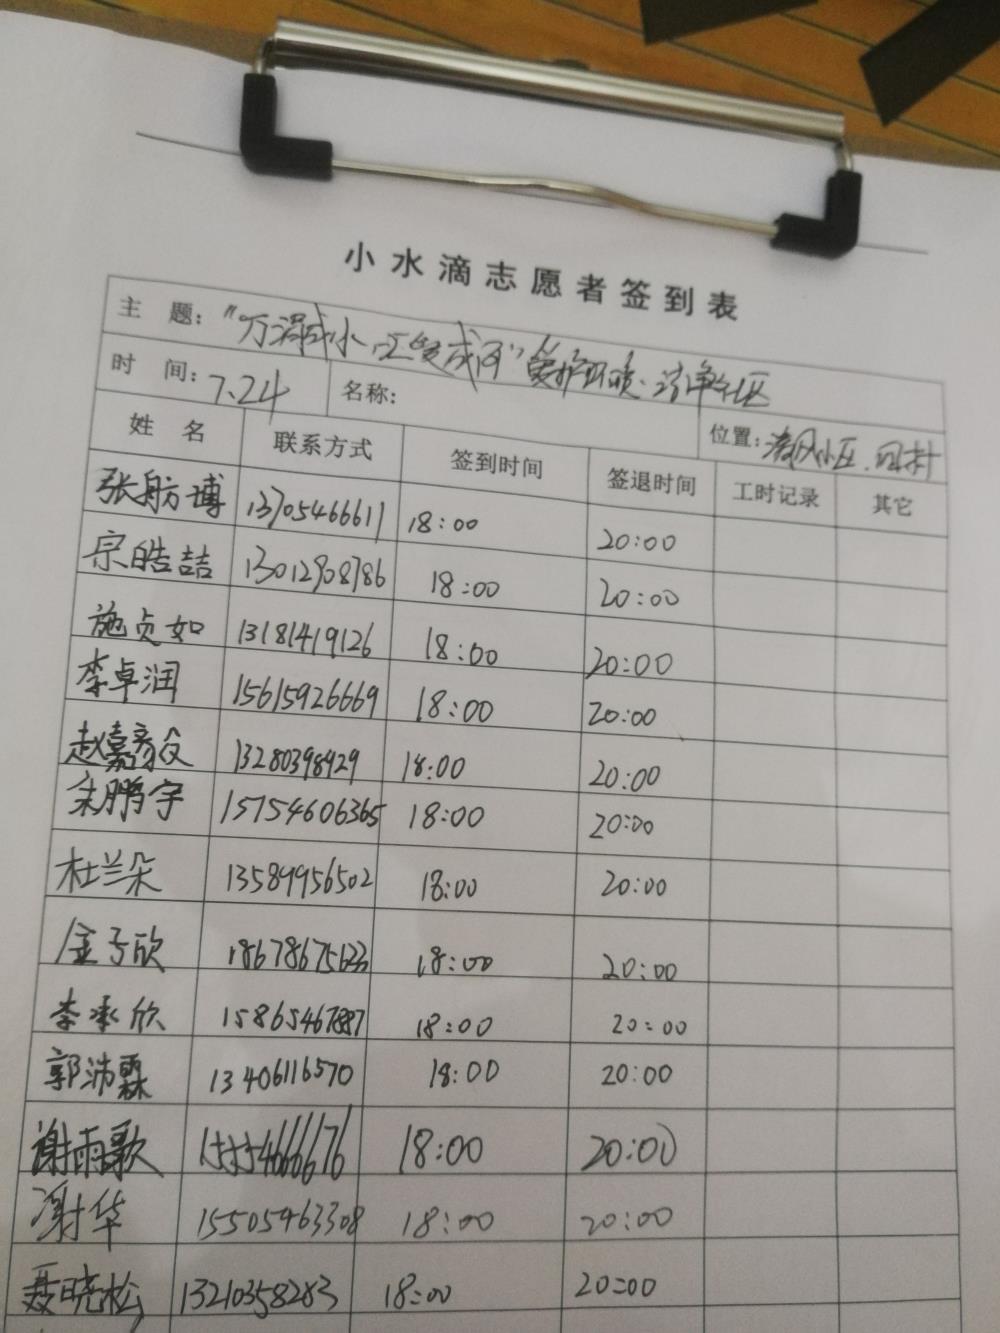 小水滴志愿者签到表
主 题："万涓成水，汇变成河"爱护环境、洁净社区
时 间：7.24 名称： 位置：清风小区
姓 名 联系方式 签到时间 签退时间 工时记录 其它
张舫博 13705466611 18:00 20:00
宗皓喆 13012908786 18:00 20:00
施贞如 13181419126 18:00 20:00
李卓润 15615926669 18:00 20:00
赵嘉毅 13280398929 18:00 20:00
朱鹏宇 15754606365 18:00 20:00
杜兰朵 13589956502 18:00 20:00
金子欣 18:00 20:00
李承欣 15865467887 18:00 20:00
郭沛霖 13406116570 18:00 20:00
谢雨歌 18:00 20:00
谢华 15505463308 18:00 20:00
聂晓松 13210358283 18:00 20:00